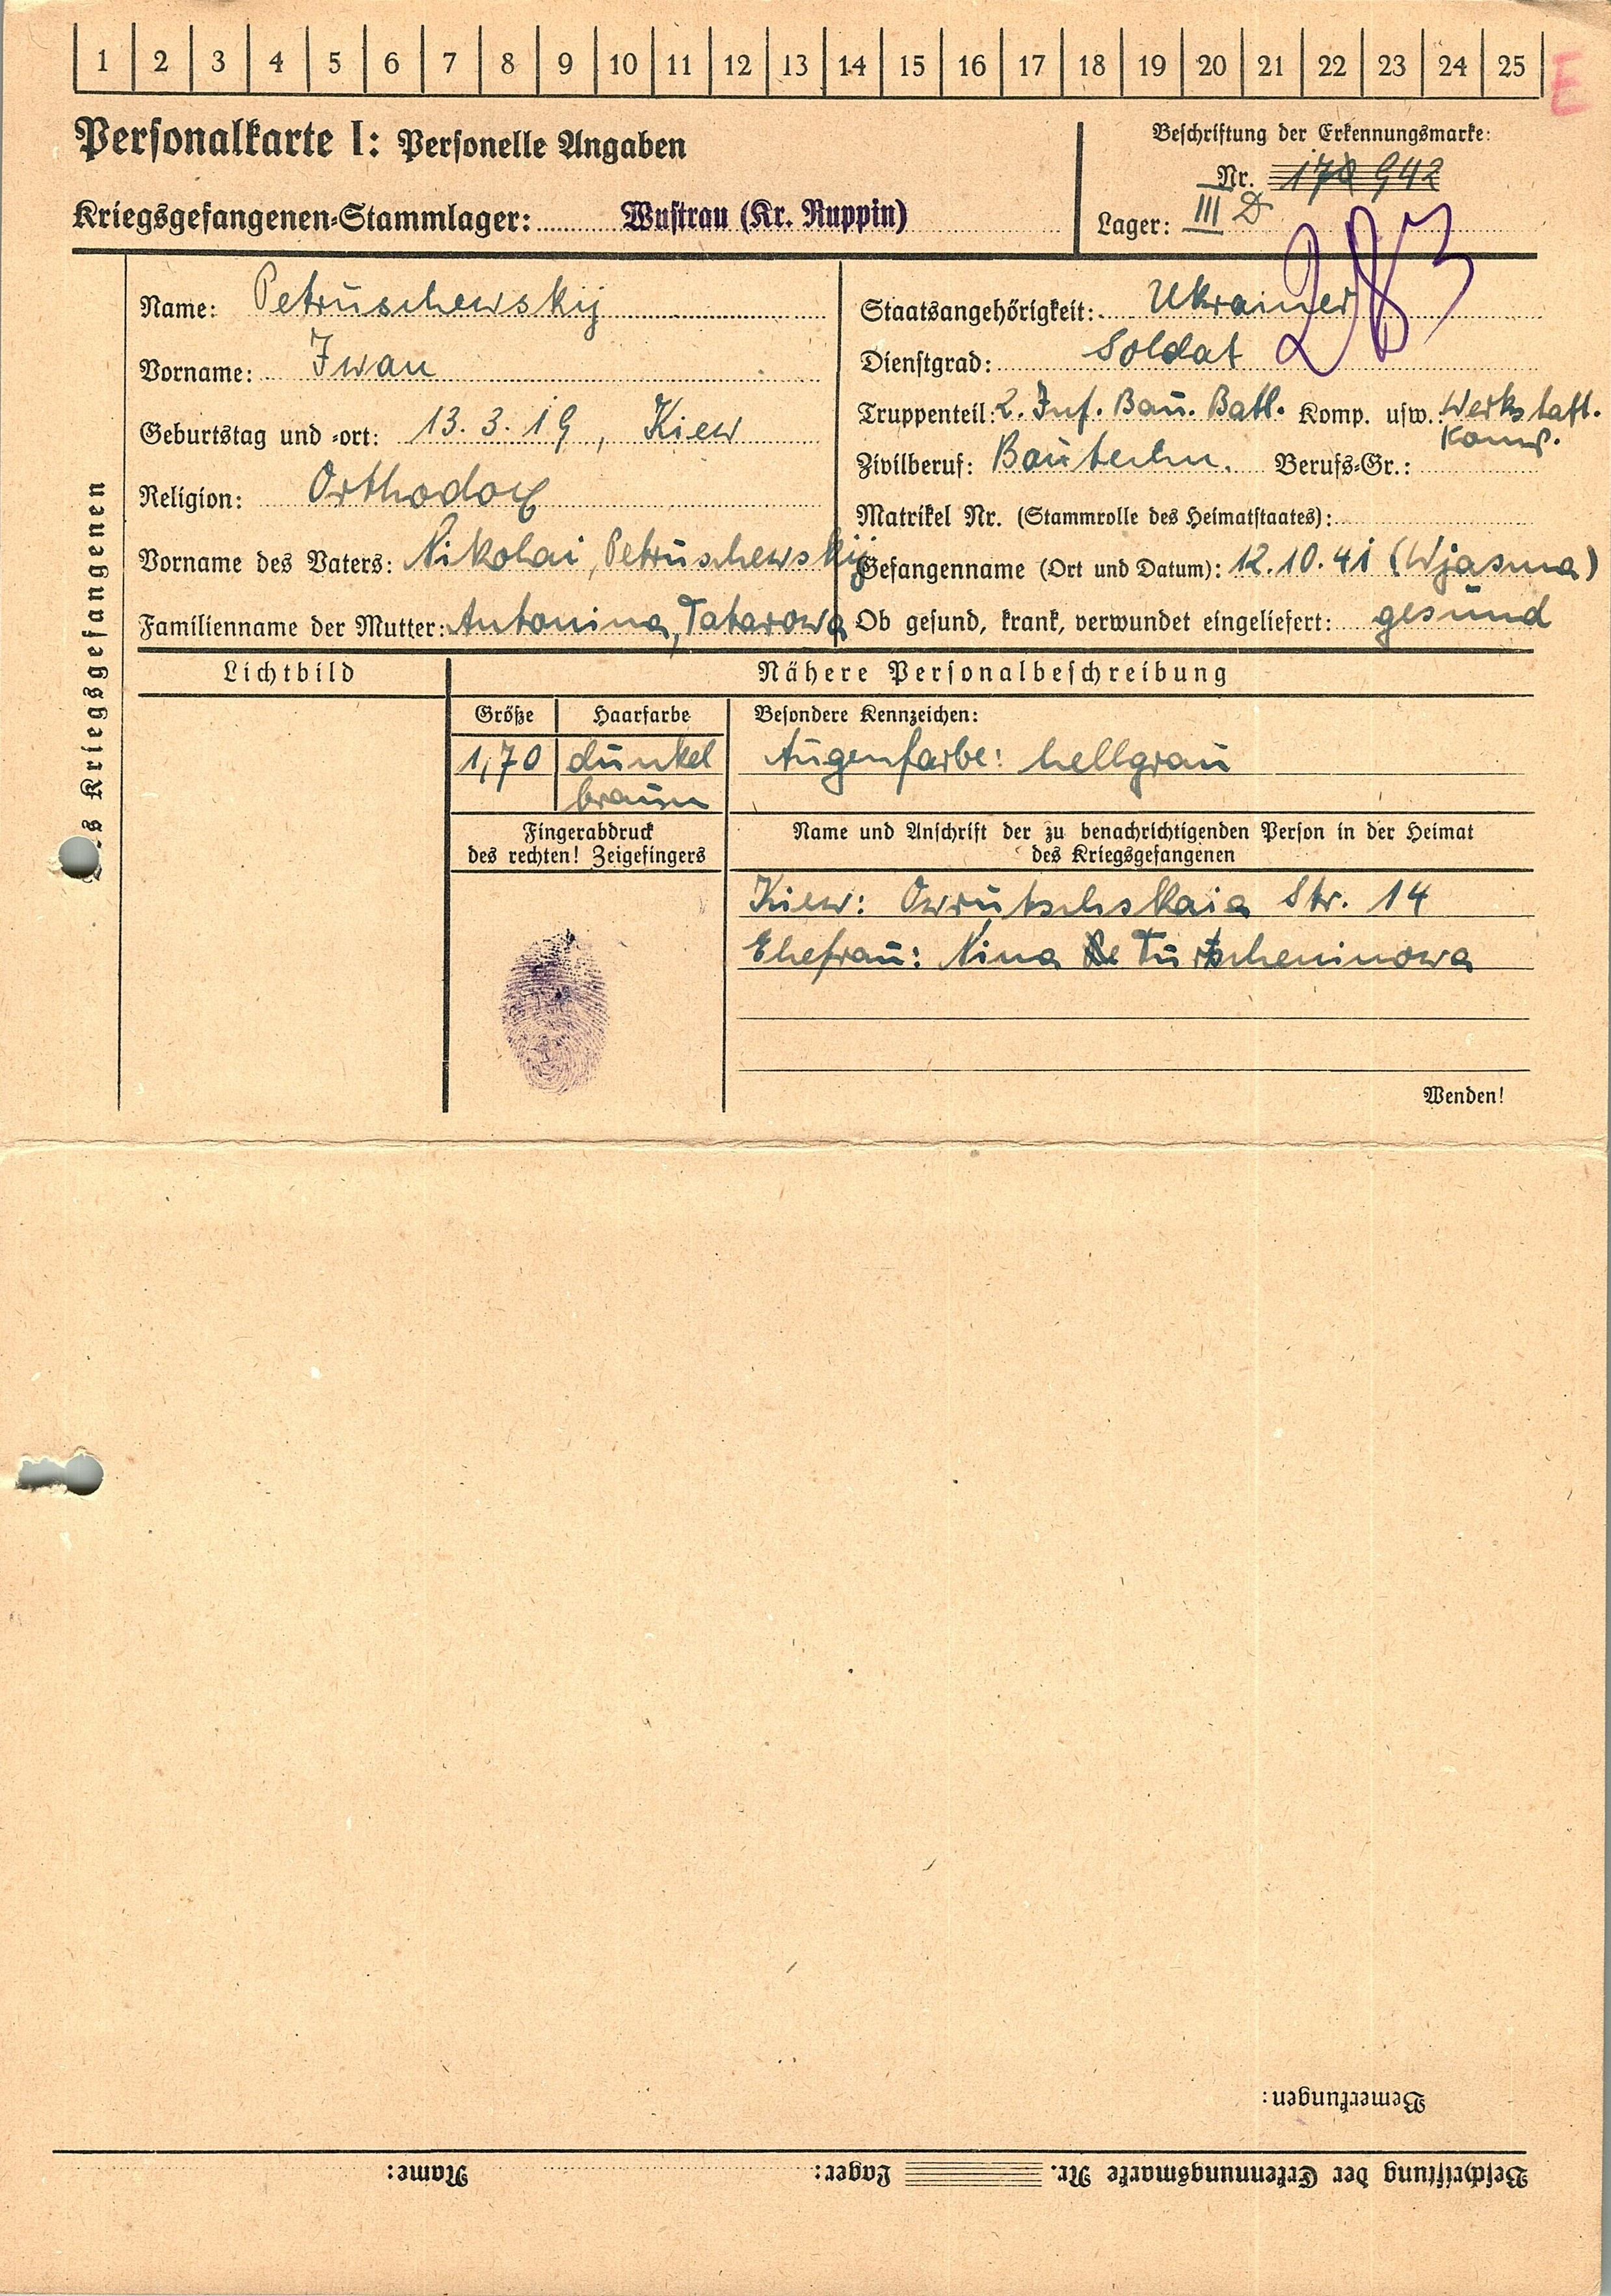 1 2 3 4 5 6 7 8 9 10 11 12 13 14 15 16 17 18 19 20 21 22 23 24 25 E
Personalkarte I: Personelle Angaben
Beschriftung der Erkennungsmarke:
Nr. 170 942
Kriegsgefangenen-Stammlager: Wustrau (Kr. Ruppin)
Lager: III D
283
Name: Petruschewskij
Vorname: Iwan
Geburtstag und -ort: 13.3.19, Kiew
Religion: Orthodox
Vorname des Vaters: Nikolai, Petruschewskij
Familienname der Mutter: Antonina, Tatarowa
Staatsangehörigkeit: Ukrainer
Dienstgrad: Soldat
Truppenteil: 2. Inf. Bau. Batl. Komp. usw.: Werkstatt.
Komp.
Zivilberuf: Bautechn. Berufs-Gr.:
Matrikel Nr. (Stammrolle des Heimatstaates):
Gefangenname (Ort und Datum): 12.10.41 (Wjasma)
Ob gesund, krank, verwundet eingeliefert: gesund
s Kriegsgefangenen
Lichtbild
Nähere Personalbeschreibung
Größe Haarfarbe Besondere Kennzeichen:
1,70 dunkel Augenfarbe: hellgrau
braun
Fingerabdruck
des rechten! Zeigefingers
Name und Anschrift der zu benachrichtigenden Person in der Heimat
des Kriegsgefangenen
Kiew: Owrutschskaia Str. 14
Ehefrau: Nina Turtscheninowa
Wenden!
Bemerkungen:
Beschriftung der Erkennungsmarke Nr. Lager: Name: